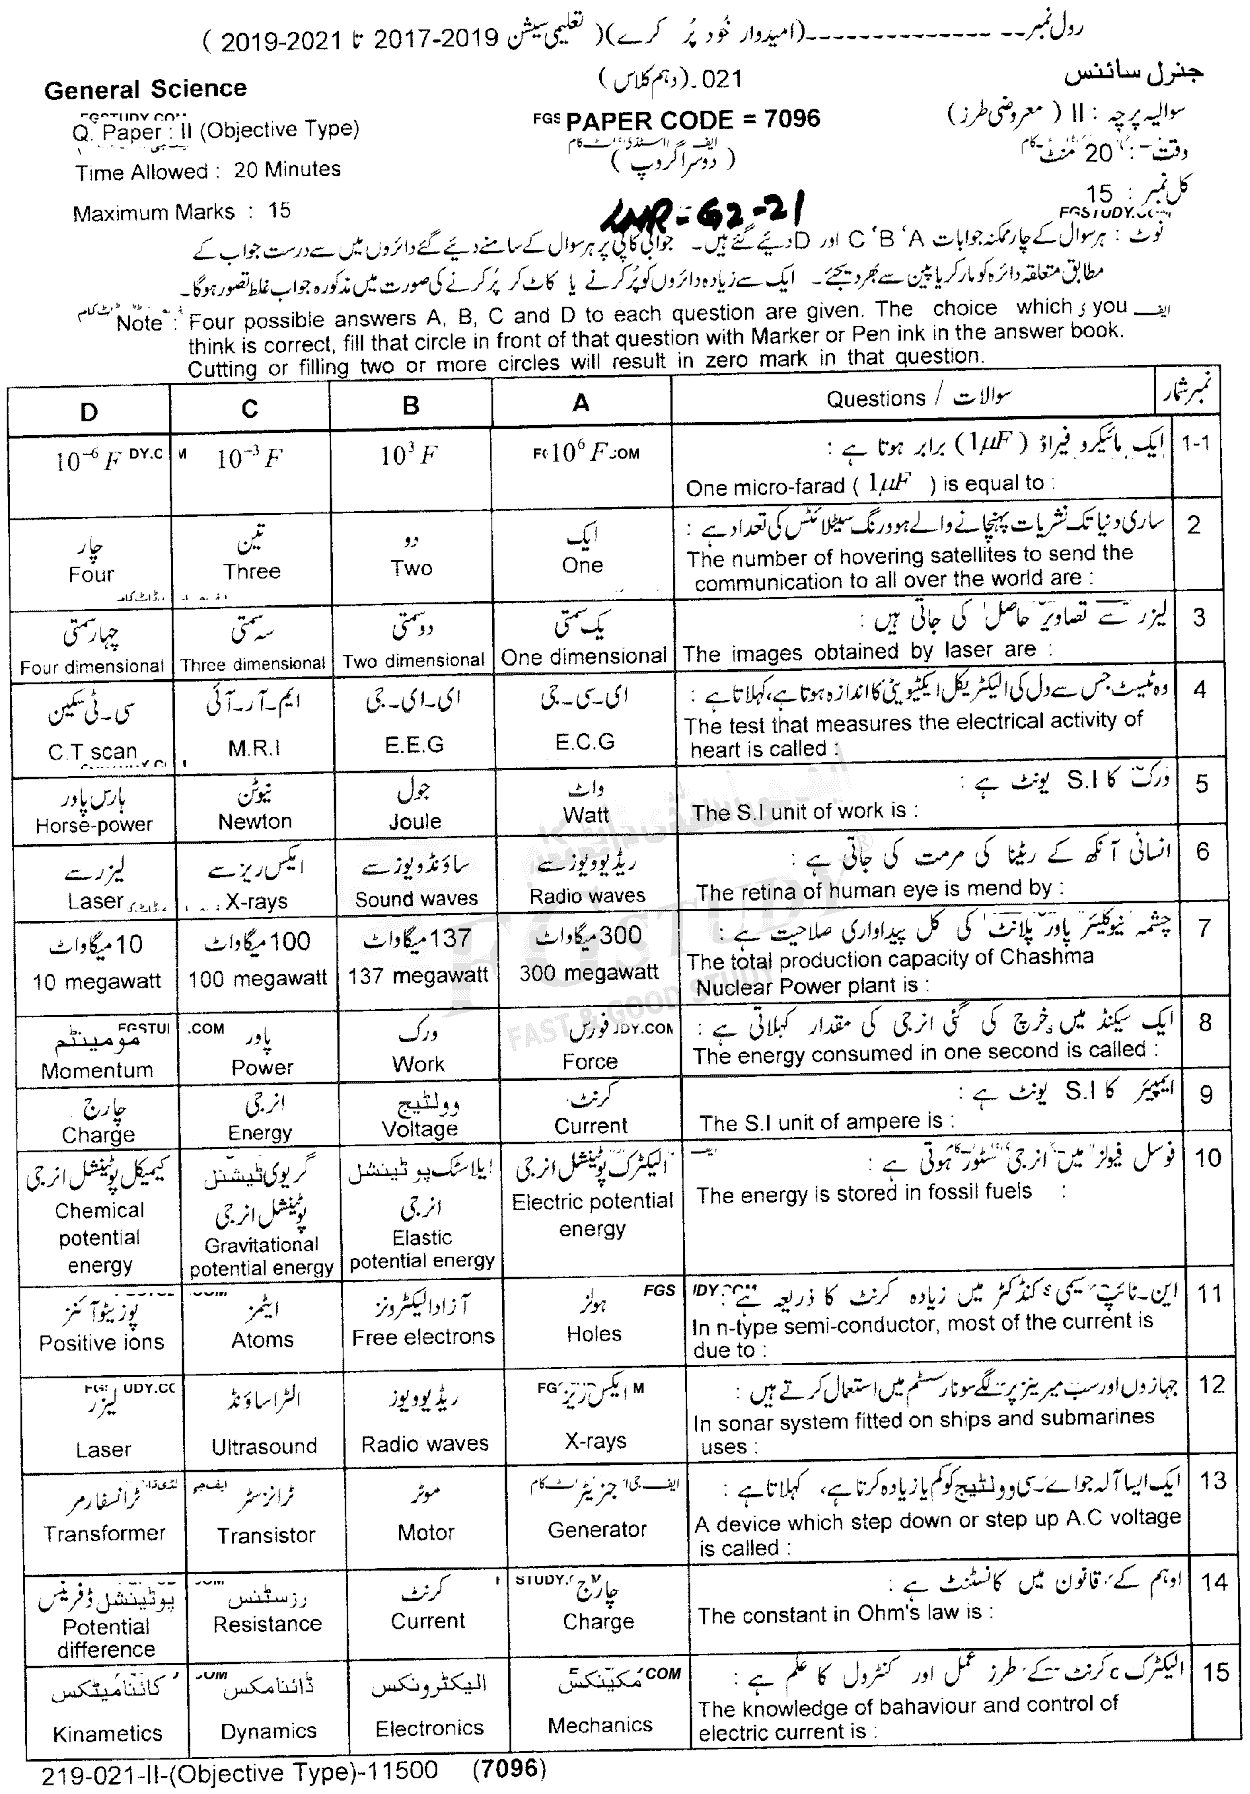 رول نمبر---------------(امیدوار خود پُر کرے)( تعلیمی سیشن 2019-2017 تا 2021-2019 )
جنرل سائنس
021-(دہم کلاس)
General Science
سوالیہ پرچہ : II ( معروضی طرز )
FGS PAPER CODE = 7096
FGSTUDY.COM
Q. Paper : II (Objective Type)
وقت : 20 منٹ
( دوسرا گروپ )
Time Allowed : 20 Minutes
کل نمبر : 15
LHR-G2-21
Maximum Marks : 15
FGSTUDY.COM
نوٹ : ہر سوال کے چار ممکنہ جوابات A ،B ،C اور D دیئے گئے ہیں۔ جوابی کاپی پر ہر سوال کے سامنے دیئے گئے دائروں میں سے درست جواب کے
مطابق متعلقہ دائرہ کو مارکر یا پین سے بھر دیجئے۔ ایک سے زیادہ دائروں کو پُر کرنے یا کاٹ کر پُر کرنے کی صورت میں مذکورہ جواب غلط تصور ہوگا۔
Note : Four possible answers A, B, C and D to each question are given. The choice which you
think is correct, fill that circle in front of that question with Marker or Pen ink in the answer book.
Cutting or filling two or more circles will result in zero mark in that question.
D C B A Questions / سوالات نمبر شمار
1-1 ایک مائیکرو فیراڈ (1μF) برابر ہوتا ہے :
One micro-farad ( 1μF ) is equal to :
10⁻⁶ F 10⁻³ F 10³ F 10⁶ F
2 ساری دنیا تک نشریات پہنچانے والے ہوورنگ سیٹلائٹس کی تعداد ہے :
The number of hovering satellites to send the
communication to all over the world are :
چار تین دو ایک
Four Three Two One
3 لیزر سے تصاویر حاصل کی جاتی ہیں :
The images obtained by laser are :
چہار سمتی سہ سمتی دو سمتی یک سمتی
Four dimensional Three dimensional Two dimensional One dimensional
4 وہ ٹیسٹ جس سے دل کی الیکٹریکل ایکٹیویٹی کا اندازہ ہوتا ہے، کہلاتا ہے :
The test that measures the electrical activity of
heart is called :
سی۔ٹی سکین ایم۔آر۔آئی ای۔ای۔جی ای۔سی۔جی
C.T scan M.R.I E.E.G E.C.G
5 ورک کا S.I یونٹ ہے :
The S.I unit of work is :
ہارس پاور نیوٹن جول واٹ
Horse-power Newton Joule Watt
6 انسانی آنکھ کے ریٹینا کی مرمت کی جاتی ہے :
The retina of human eye is mend by :
لیزر سے ایکس ریز سے ساؤنڈ ویوز سے ریڈیو ویوز سے
Laser X-rays Sound waves Radio waves
7 چشمہ نیوکلیئر پاور پلانٹ کی کل پیداواری صلاحیت ہے :
The total production capacity of Chashma
Nuclear Power plant is :
10 میگاواٹ 100 میگاواٹ 137 میگاواٹ 300 میگاواٹ
10 megawatt 100 megawatt 137 megawatt 300 megawatt
8 ایک سیکنڈ میں خرچ کی گئی انرجی کی مقدار کہلاتی ہے :
The energy consumed in one second is called :
مومینٹم پاور ورک فورس
Momentum Power Work Force
9 ایمپیئر کا S.I یونٹ ہے :
The S.I unit of ampere is :
چارج انرجی وولٹیج کرنٹ
Charge Energy Voltage Current
10 فوسل فیولز میں انرجی سٹور ہوتی ہے :
The energy is stored in fossil fuels :
کیمیکل پوٹینشل انرجی گریوی ٹیشنل پوٹینشل انرجی ایلاسٹک پوٹینشل انرجی الیکٹرک پوٹینشل انرجی
Chemical potential energy Gravitational potential energy Elastic potential energy Electric potential energy
11 این۔ٹائپ سیمی کنڈکٹر میں زیادہ کرنٹ کا ذریعہ ہے :
In n-type semi-conductor, most of the current is
due to :
پوزیٹو آئنز ایٹمز آزاد الیکٹرونز ہولز
Positive ions Atoms Free electrons Holes
12 جہازوں اور سب میرینز پر لگے سونار سسٹم میں استعمال کرتے ہیں :
In sonar system fitted on ships and submarines
uses :
لیزر الٹراساؤنڈ ریڈیو ویوز ایکس ریز
Laser Ultrasound Radio waves X-rays
13 ایک ایسا آلہ جو اے۔سی وولٹیج کو کم یا زیادہ کرتا ہے، کہلاتا ہے :
A device which step down or step up A.C voltage
is called :
ٹرانسفارمر ٹرانزسٹر موٹر جنریٹر
Transformer Transistor Motor Generator
14 اوہم کے قانون میں کانسٹنٹ ہے :
The constant in Ohm's law is :
پوٹینشل ڈفرینس رزسٹنس کرنٹ چارج
Potential difference Resistance Current Charge
15 الیکٹرک کرنٹ کے طرز عمل اور کنٹرول کا علم ہے :
The knowledge of bahaviour and control of
electric current is :
کائنامیٹکس ڈائنامکس الیکٹرونکس مکینکس
Kinametics Dynamics Electronics Mechanics
FG STUDY
FAST & GOOD STUDY
219-021-II-(Objective Type)-11500 (7096)